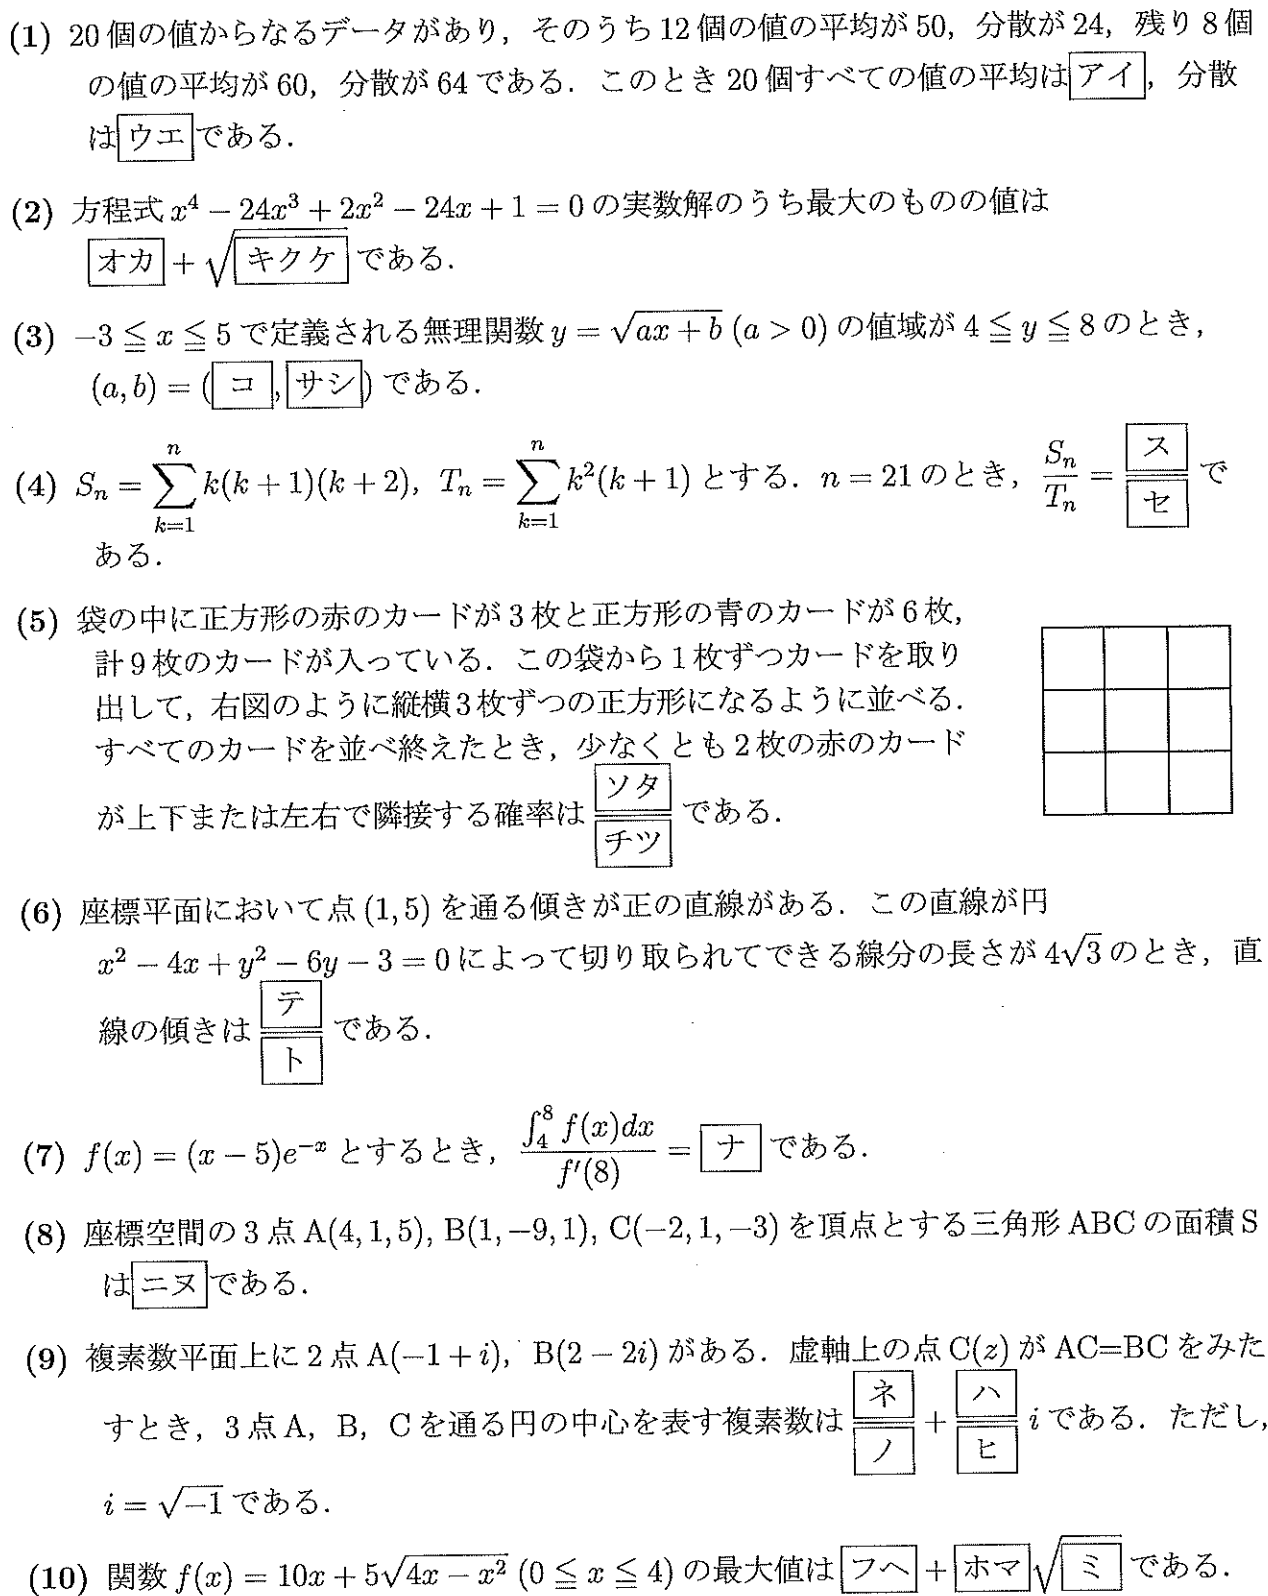 (1) 20個の値からなるデータがあり，そのうち12個の値の平均が50，分散が24，残り8個
の値の平均が60，分散が64である．このとき20個すべての値の平均はアイ，分散
はウエである．
(2) 方程式 x⁴ − 24x³ + 2x² − 24x + 1 = 0 の実数解のうち最大のものの値は
オカ + √キクケ である．
(3) −3 ≦ x ≦ 5 で定義される無理関数 y = √(ax + b) (a > 0) の値域が 4 ≦ y ≦ 8 のとき，
(a, b) = (コ, サシ) である．
(4) Sₙ = ∑_{k=1}^{n} k(k + 1)(k + 2), Tₙ = ∑_{k=1}^{n} k²(k + 1) とする．n = 21 のとき，Sₙ/Tₙ = ス/セ で
ある．
(5) 袋の中に正方形の赤のカードが3枚と正方形の青のカードが6枚，
計9枚のカードが入っている．この袋から1枚ずつカードを取り
出して，右図のように縦横3枚ずつの正方形になるように並べる．
すべてのカードを並べ終えたとき，少なくとも2枚の赤のカード
が上下または左右で隣接する確率は ソタ/チツ である．
(6) 座標平面において点 (1, 5) を通る傾きが正の直線がある．この直線が円
x² − 4x + y² − 6y − 3 = 0 によって切り取られてできる線分の長さが 4√3 のとき，直
線の傾きは テ/ト である．
(7) f(x) = (x − 5)e⁻ˣ とするとき，∫₄⁸ f(x)dx/f′(8) = ナ である．
(8) 座標空間の3点 A(4, 1, 5), B(1, −9, 1), C(−2, 1, −3) を頂点とする三角形 ABC の面積 S
はニヌである．
(9) 複素数平面上に2点 A(−1 + i), B(2 − 2i) がある．虚軸上の点 C(z) が AC=BC をみた
すとき，3点 A，B，C を通る円の中心を表す複素数は ネ/ノ + ハ/ヒ i である．ただし，
i = √−1 である．
(10) 関数 f(x) = 10x + 5√(4x − x²) (0 ≦ x ≦ 4) の最大値は フヘ + ホマ√ミ である．